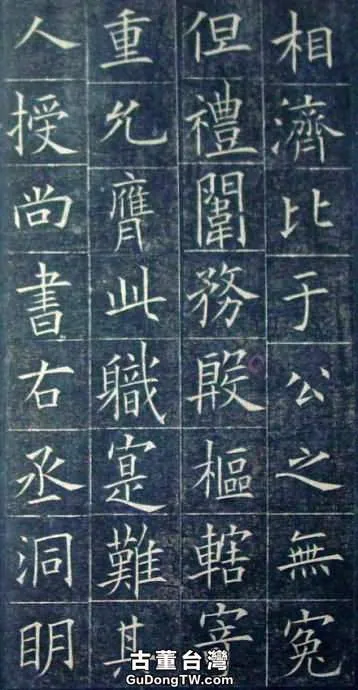 相濟比于公之無冤
但禮闈務殷樞轄寄
重允膺此職寔難其
人授尚書右丞洞眀
古董台灣
GuDongTW.com